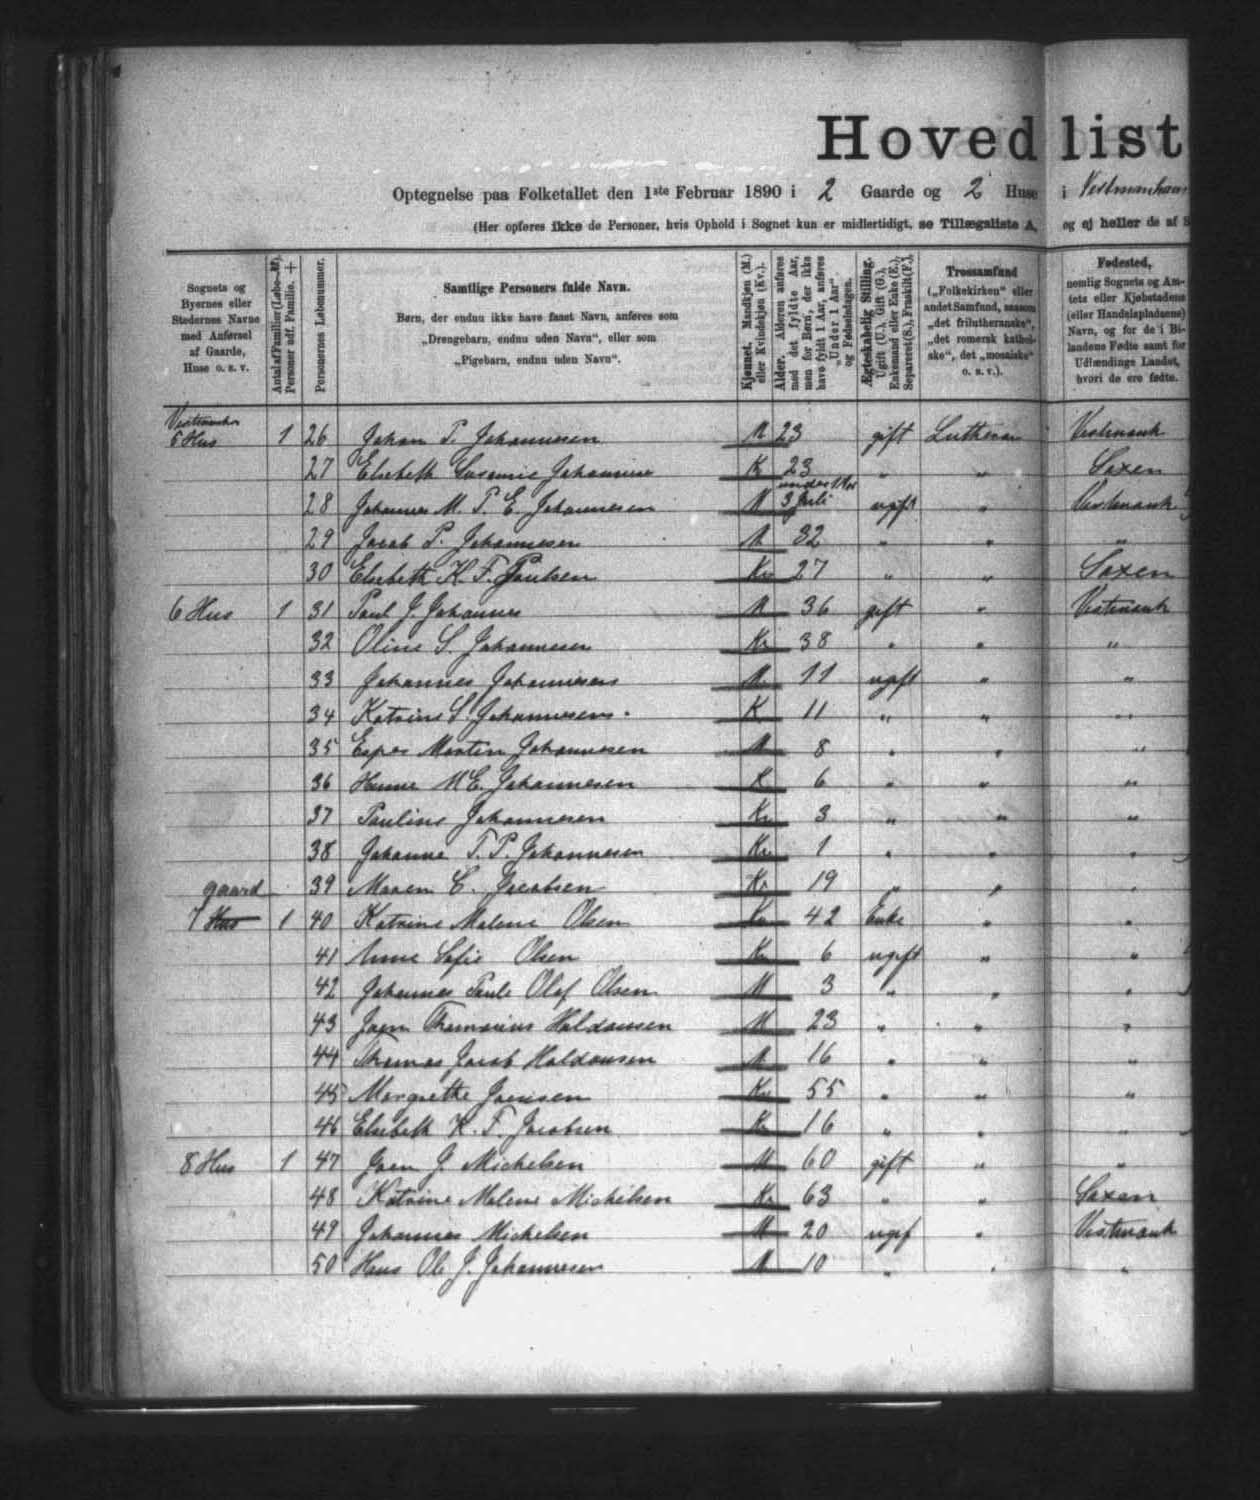 Hovedlist
Optegnelse paa Folketallet den 1ste Februar 1890 i 2 Gaarde og 2 Huse i Vestmanhavn
(Her opføres ikke de Personer, hvis Ophold i Sognet kun er midlertidigt, se Tillægsliste A, og ej heller de af S
Sognets og Byernes eller Stedernes Navne med Anførsel af Gaarde, Huse o. s. v.
Antal af Familier (Løbe-M). Personer udf. Familie. +
Personernes Løbenummer.
Samtlige Personers fulde Navn.
Børn, der endnu ikke have faaet Navn, anføres som
„Drengebarn, endnu uden Navn", eller som
„Pigebarn, endnu uden Navn".
Kjønnet. Mandkjøn (M.) eller Kvindekjøn (Kv.).
Alder. Alderen anføres med det fyldte Aar, men for Børn, der ikke have fyldt 1 Aar, anføres „Under 1 Aar" og Fødselsdagen.
Ægteskabelig Stilling. Ugift (U.), Gift (G.), Enkemand eller Enke (E.), Separeret (S.), Fraskilt (F.).
Trossamfund („Folkekirken" eller andet Samfund, saasom „det frilutheranske", „det romersk katholske", det „mosaiske" o. s. v.).
Fødested, nemlig Sognets og Amtets eller Kjøbstadens (eller Handelspladsens) Navn, og for de i Bilandene Fødte samt for Udlændinge Landet, hvori de ere fødte.
5 Hus 1 26 Johan P. Johannesen M 23 gift Lutheran Vestmanh
27 Elsebeth Susanne Johannesen K 23 " " Saxen
28 Johannes M. P. E. Johannesen M under 1 Aar 3 Juli ugift " Vestmanh
29 Jacob P. Johannesen M 32 " " "
30 Elsebeth K. F. Poulsen Kv 27 " " Saxen
6 Hus 1 31 Paul J. Johannes M 36 gift " Vestmanh
32 Oline S. Johannesen Kv 38 " " "
33 Johannes Johannesen M. 11 ugift " "
34 Katrine S. Johannesen K 11 " " "
35 Espes Morten Johannesen M 8 " " "
36 Hanne M E. Johannesen K 6 " " "
37 Pauline Johannesen Kv 3 " " "
38 Johanne T. P. Johannesen Kv 1 " " "
39 Maren C. Jacobsen Kv 19 " " "
gaard
7 Hus 1 40 Katrine Malene Olsen Kv 42 Enke " "
41 Anne Sofie Olsen Kv 6 ugift " "
42 Johannes Paule Olaf Olsen M 3 " " "
43 Joen Thomasius Haldansen M 23 " " "
44 Thomas Jacob Haldansen M 16 " " "
45 Margrethe Joensen Kv 55 " " "
46 Elsebeth K. F. Jacobsen Kv 16 " " "
8 Hus 1 47 Joen J. Michelsen M 60 gift " "
48 Katrine Malene Michelsen Kv 63 " " Saxen
49 Johannes Michelsen M 20 ugif " Vestmanh
50 Hans Ole J. Johannesen M 10 " " "